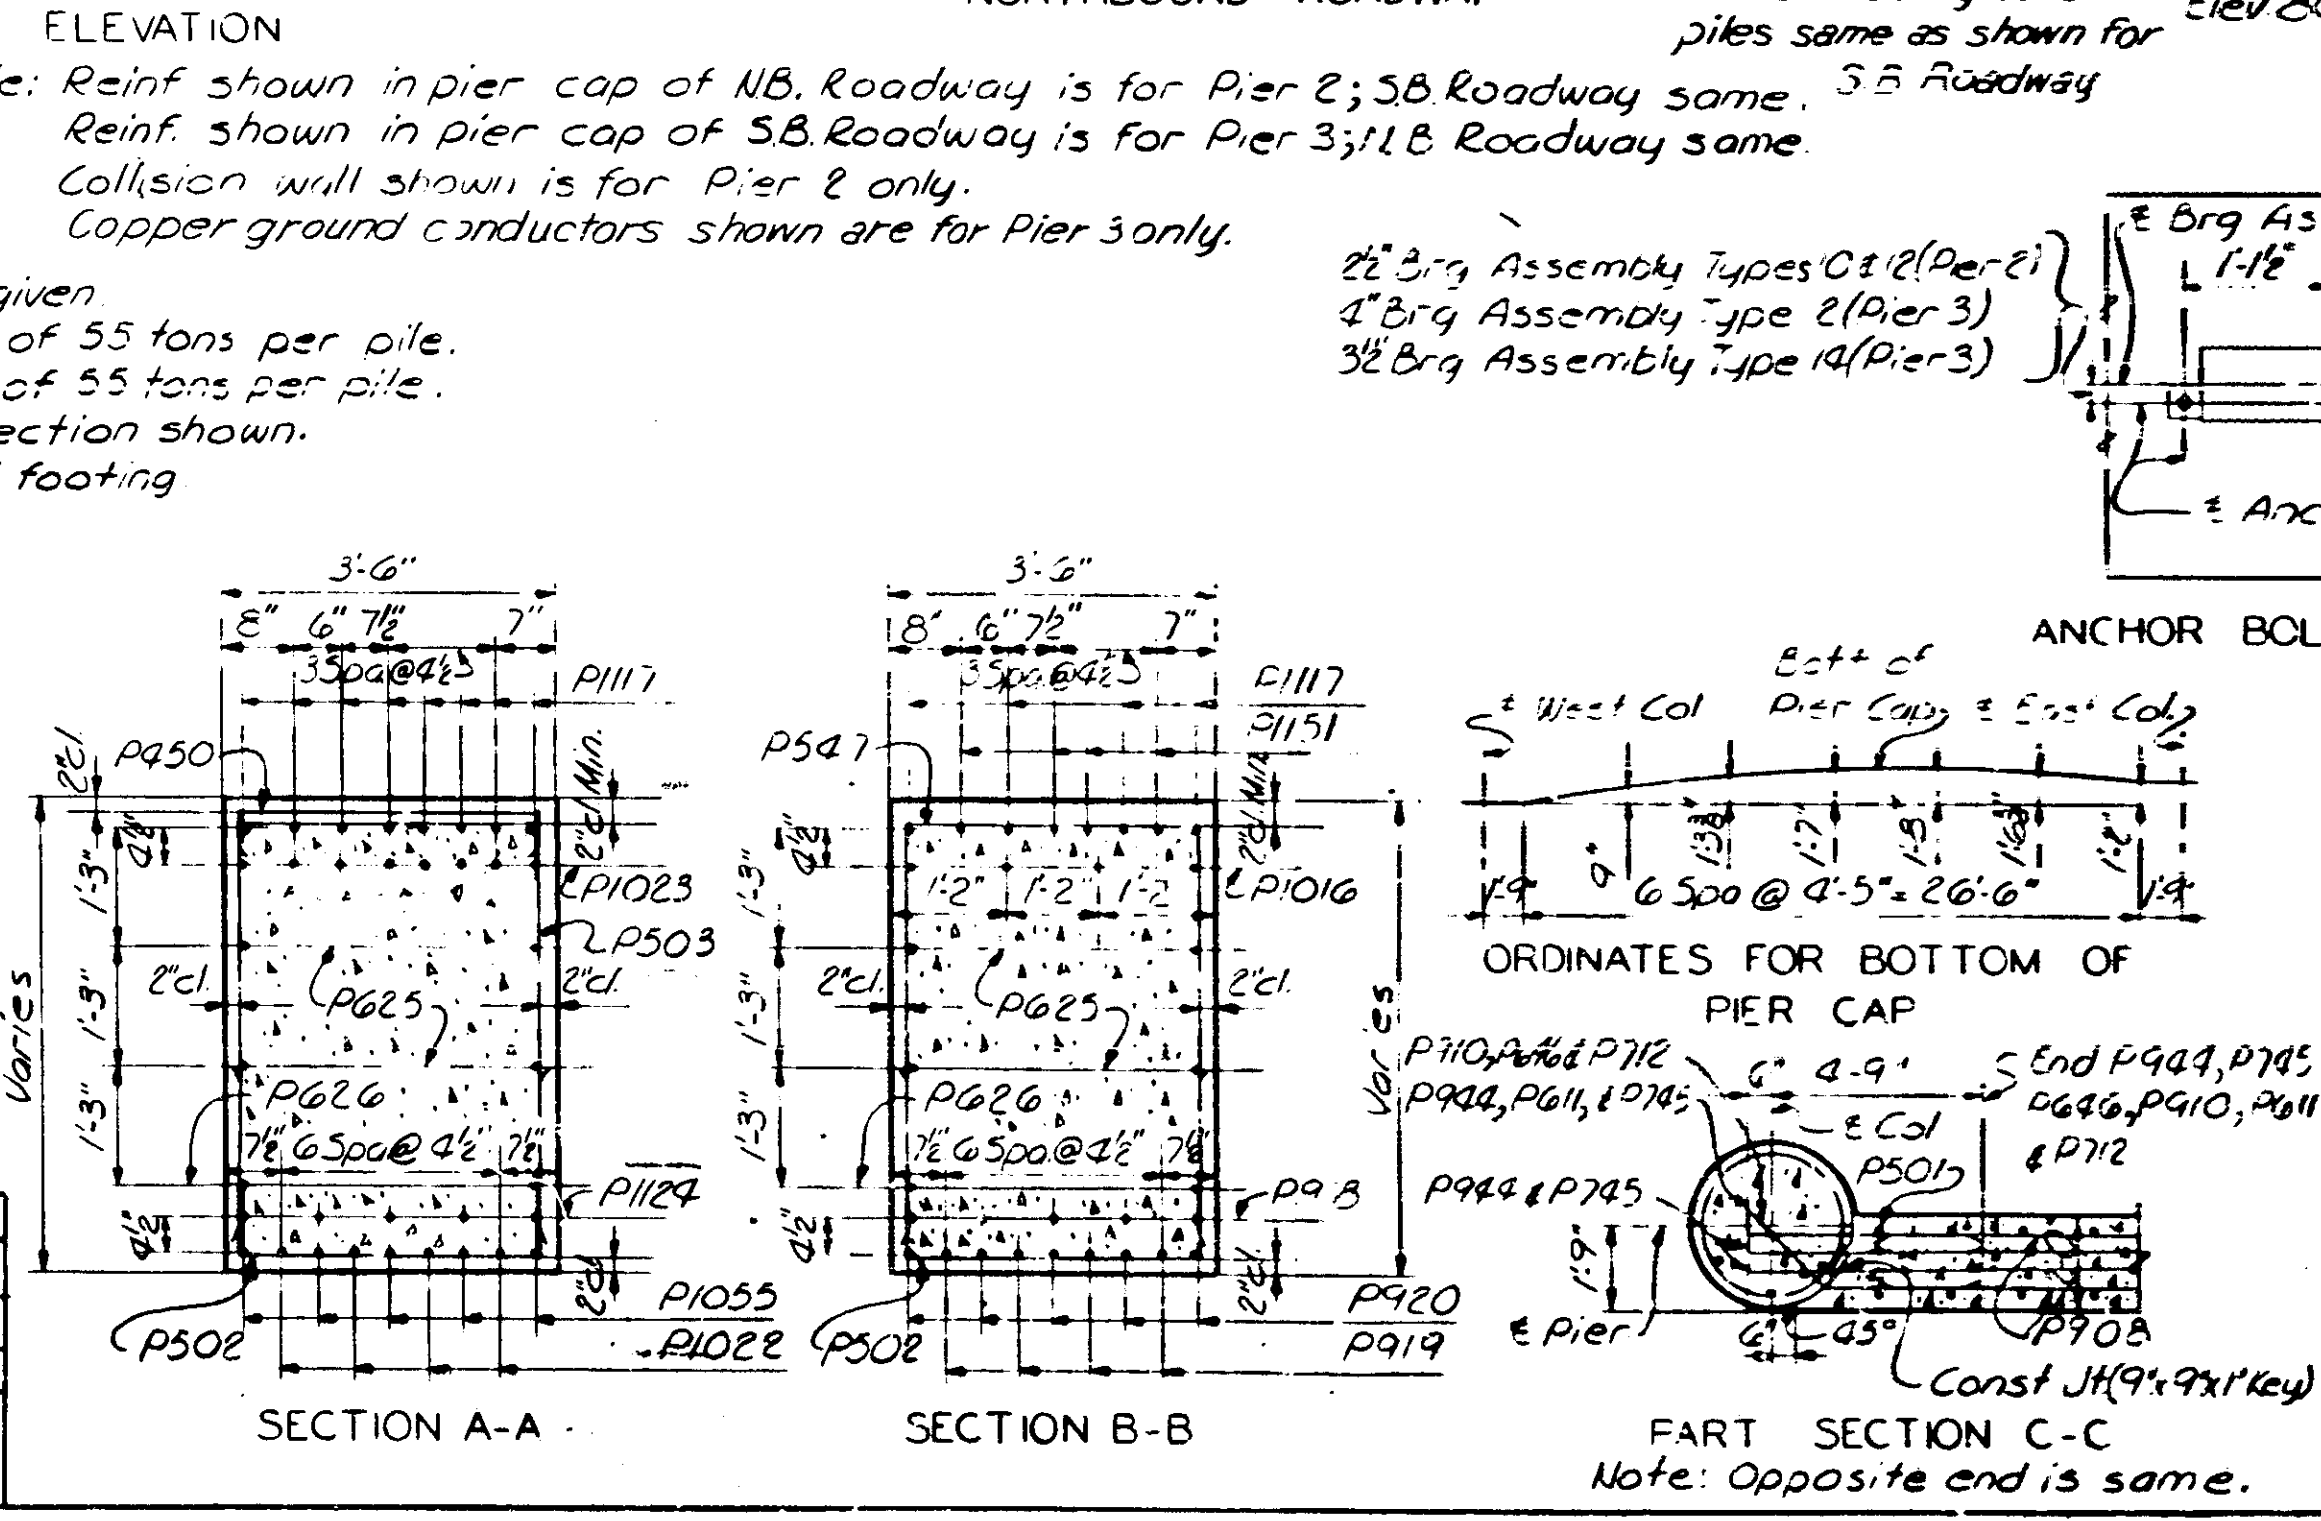 ELEVATION
piles same as shown for
S.B Roadway
e: Reinf shown in pier cap of N.B. Roadway is for Pier 2; S.B. Roadway same.
Reinf. shown in pier cap of S.B. Roadway is for Pier 3; N B Roadway same.
Collision wall shown is for Pier 2 only.
Copper ground conductors shown are for Pier 3 only.
given
of 55 tons per pile.
of 55 tons per pile.
ection shown.
footing
2½" Brg Assembly Types (Pier 2)
4" Brg Assembly Type 2 (Pier 3)
3½" Brg Assembly Type 14 (Pier 3)
℄ Brg As
1'-1½"
℄ Anc
ANCHOR BOL
3'-6"
8" 6" 7½" 7"
3 Spa @ 4½"
P1117
2"cl.
P450
2"cl Min.
4½"
1'-3"
P1023
P503
Varies
1'-3"
2"cl.
P625
2"cl.
1'-3"
P626
7½" 6 Spa @ 4½" 7½"
P1124
4½"
2"cl
P1055
P1022
P502
SECTION A-A
3'-6"
8" 6" 7½" 7"
3 Spa @ 4½"
P1117
P1151
P547
2"cl Min
4½"
1'-3"
1'-2" 1'-2" 1'-2
P1016
1'-3"
2"cl.
P625
2"cl.
Varies
1'-3"
P626
7½" 6 Spa. @ 4½" 7½"
4½"
2"cl.
P920
P919
P502
SECTION B-B
Bott of
Pier Cap
℄ West Col
℄ East Col.
9" 1'-7" 1'-8" 1'-2"
1'-9" 6 Spa @ 4'-5" = 26'-6" 1'-9"
ORDINATES FOR BOTTOM OF
PIER CAP
P712
P944, P611, & P745
6" 4'-9"
End P944, P745
P646, P910, P611
& P712
℄ Col
P501
P944 & P745
1'-9"
℄ Pier
6" 45°
P908
Const Jt (9"x9"x1" Key)
PART SECTION C-C
Note: Opposite end is same.